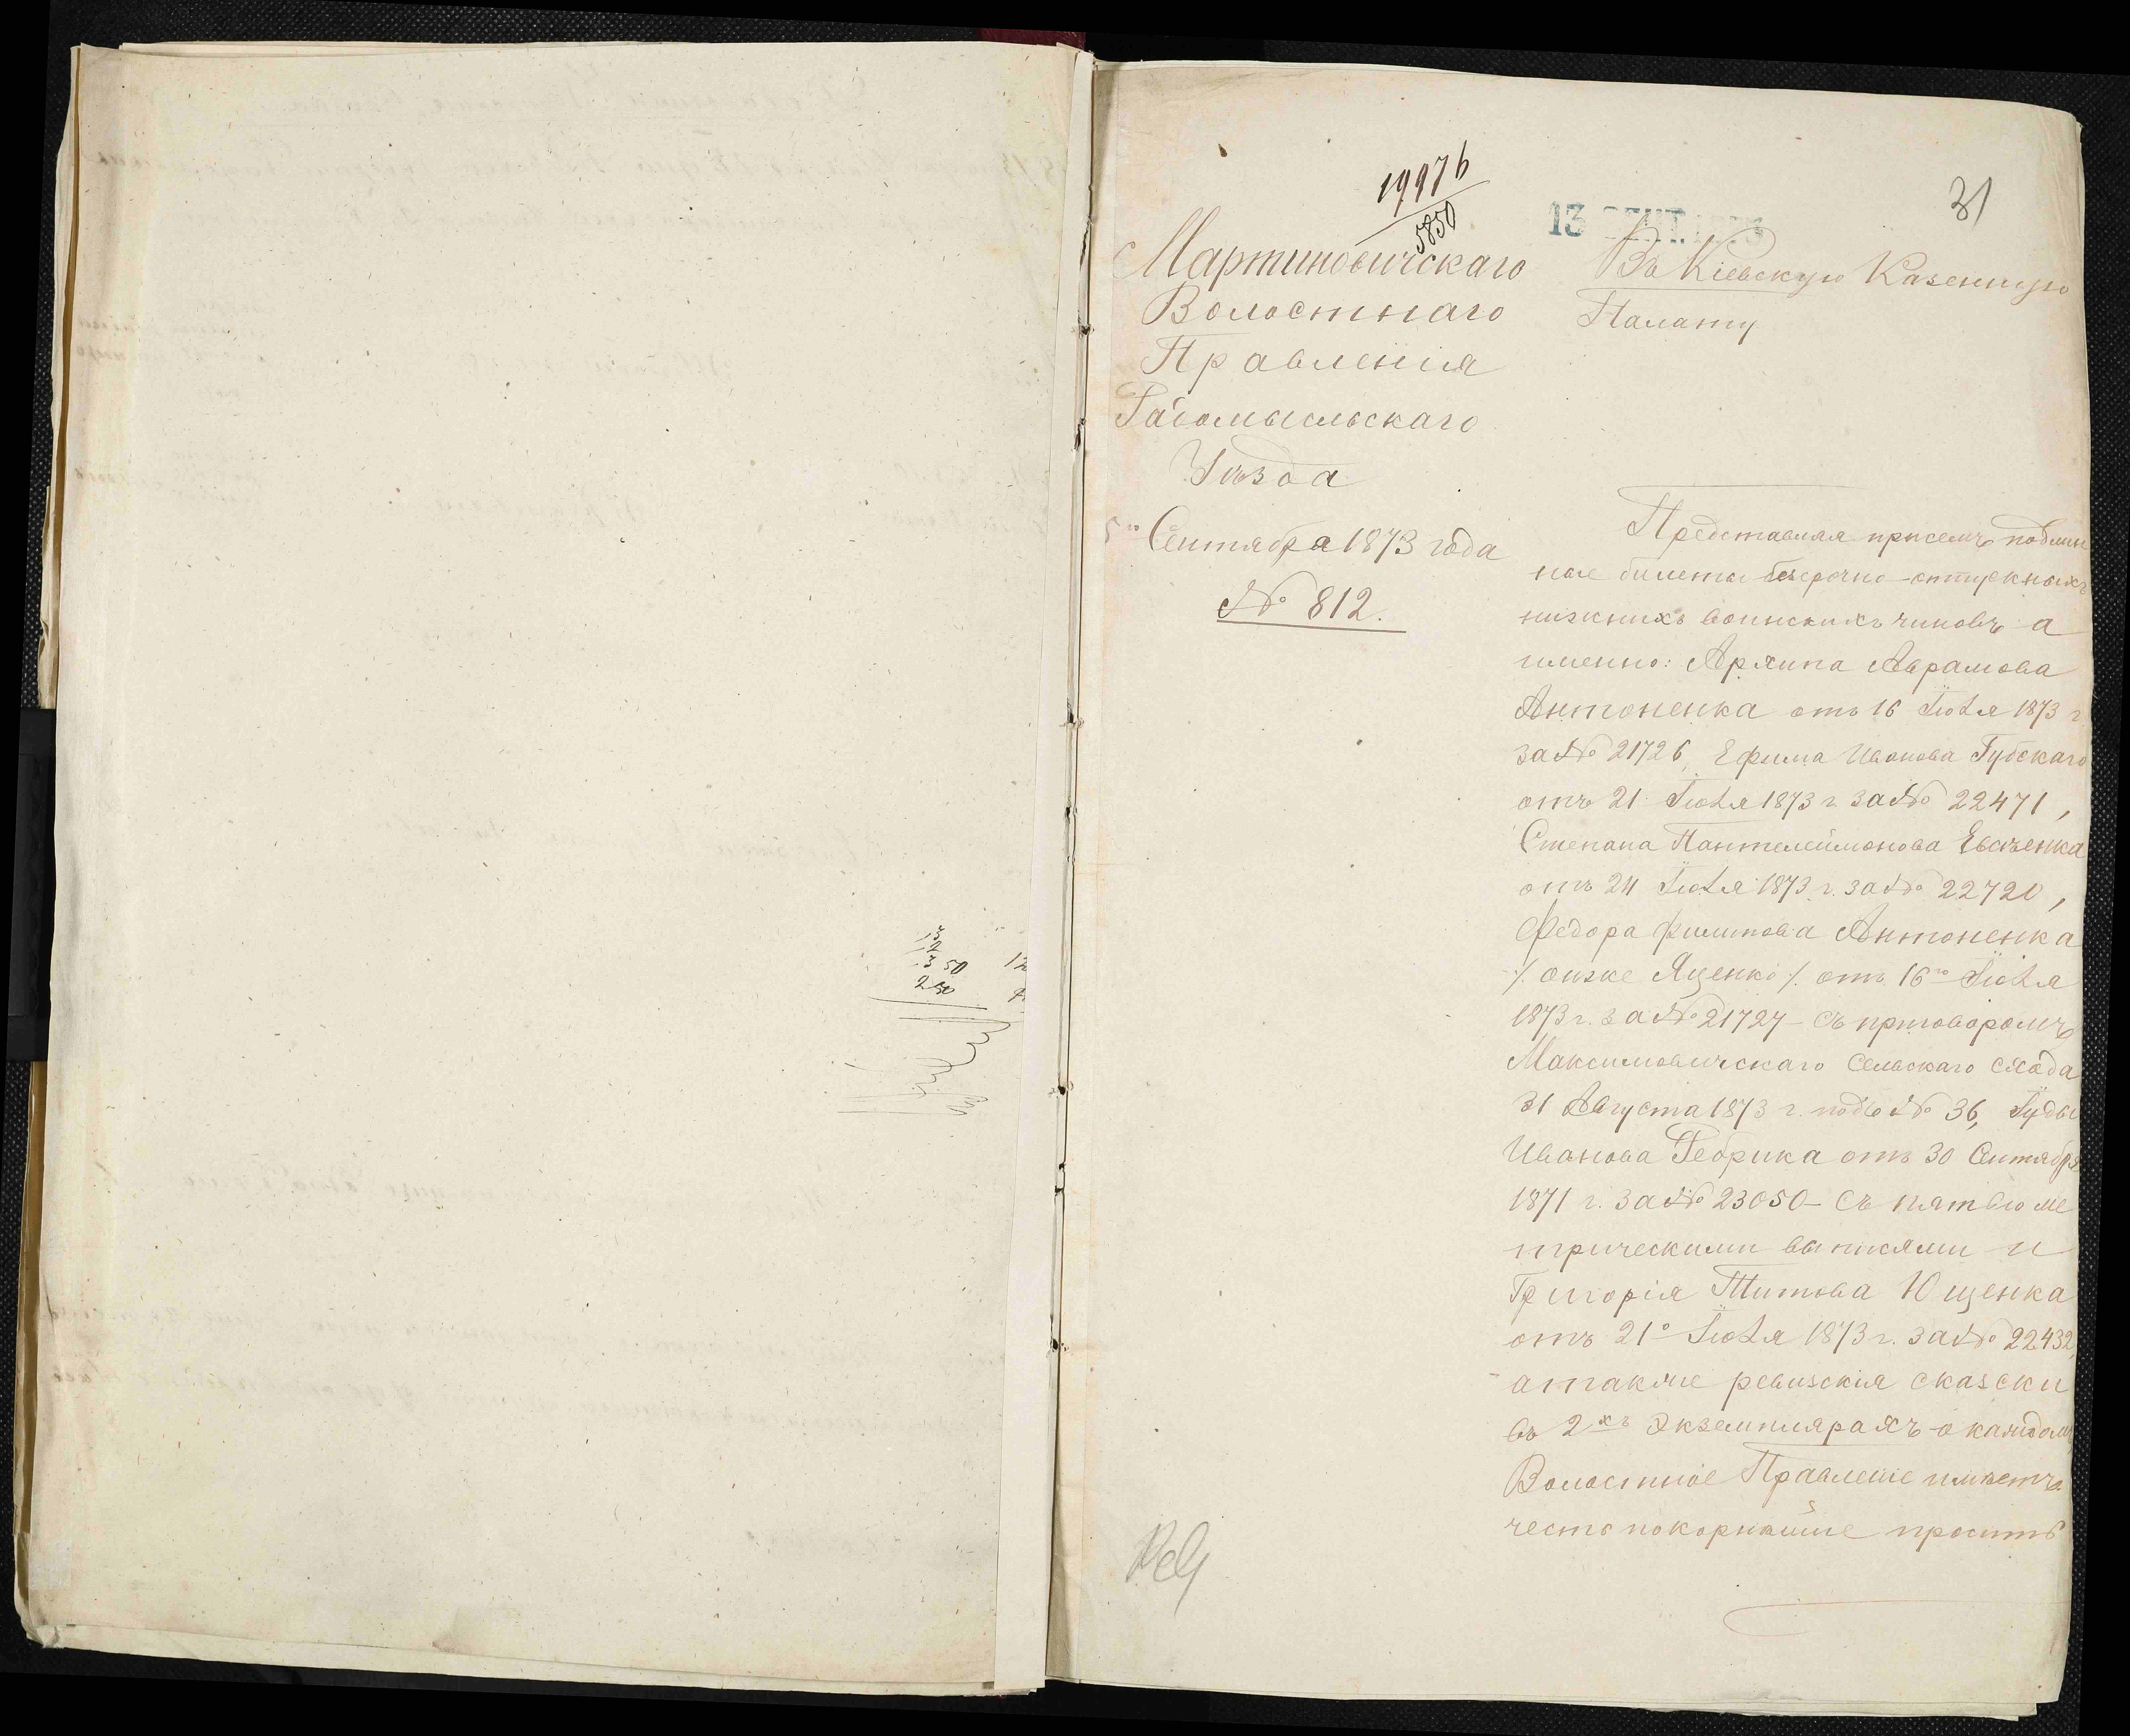 3
2
3 50
2 50
19976
5850
13 СЕНТ. 1873
31
Мартиновичскаго
Волостнаго
Правленія
Радомысльскаго
Уѣзда
5го Сентября 1873 года
№ 812.
Въ Кіевскую Казенную
Палату
Представляя присемъ подлин
ные билеты безсрочно-отпускныхъ
нижнихъ воинскихъ чиновъ а
именно: Архипа Аврамова
Антоненка отъ 16 Іюля 1873 г.
за № 21726, Ефима Иванова Губскаго
отъ 21 Іюля 1873 г. за № 22471,
Степана Пантелеймонова Евсѣенка
отъ 24 Іюля 1873 г. за № 22720,
Федора Филипова Антоненка
/. онже Яценко /. отъ 16го Іюля
1873 г. за № 21727 – Съ приговоромъ
Максимовичскаго Сельскаго схода
31 Августа 1873 г. подъ № 36, Іуды
Иванова Ребрика отъ 30 Сентября
1871 г. за № 23050 – Съ пятью ме
трическими выписями и
Григорія Титова Ющенка
отъ 21го Іюля 1873 г. за № 22432,
а также ревизскія сказски
въ 2хъ Экземплярахъ о каждомъ
Волостное Правленіе имѣетъ
честь покорнѣйше просить